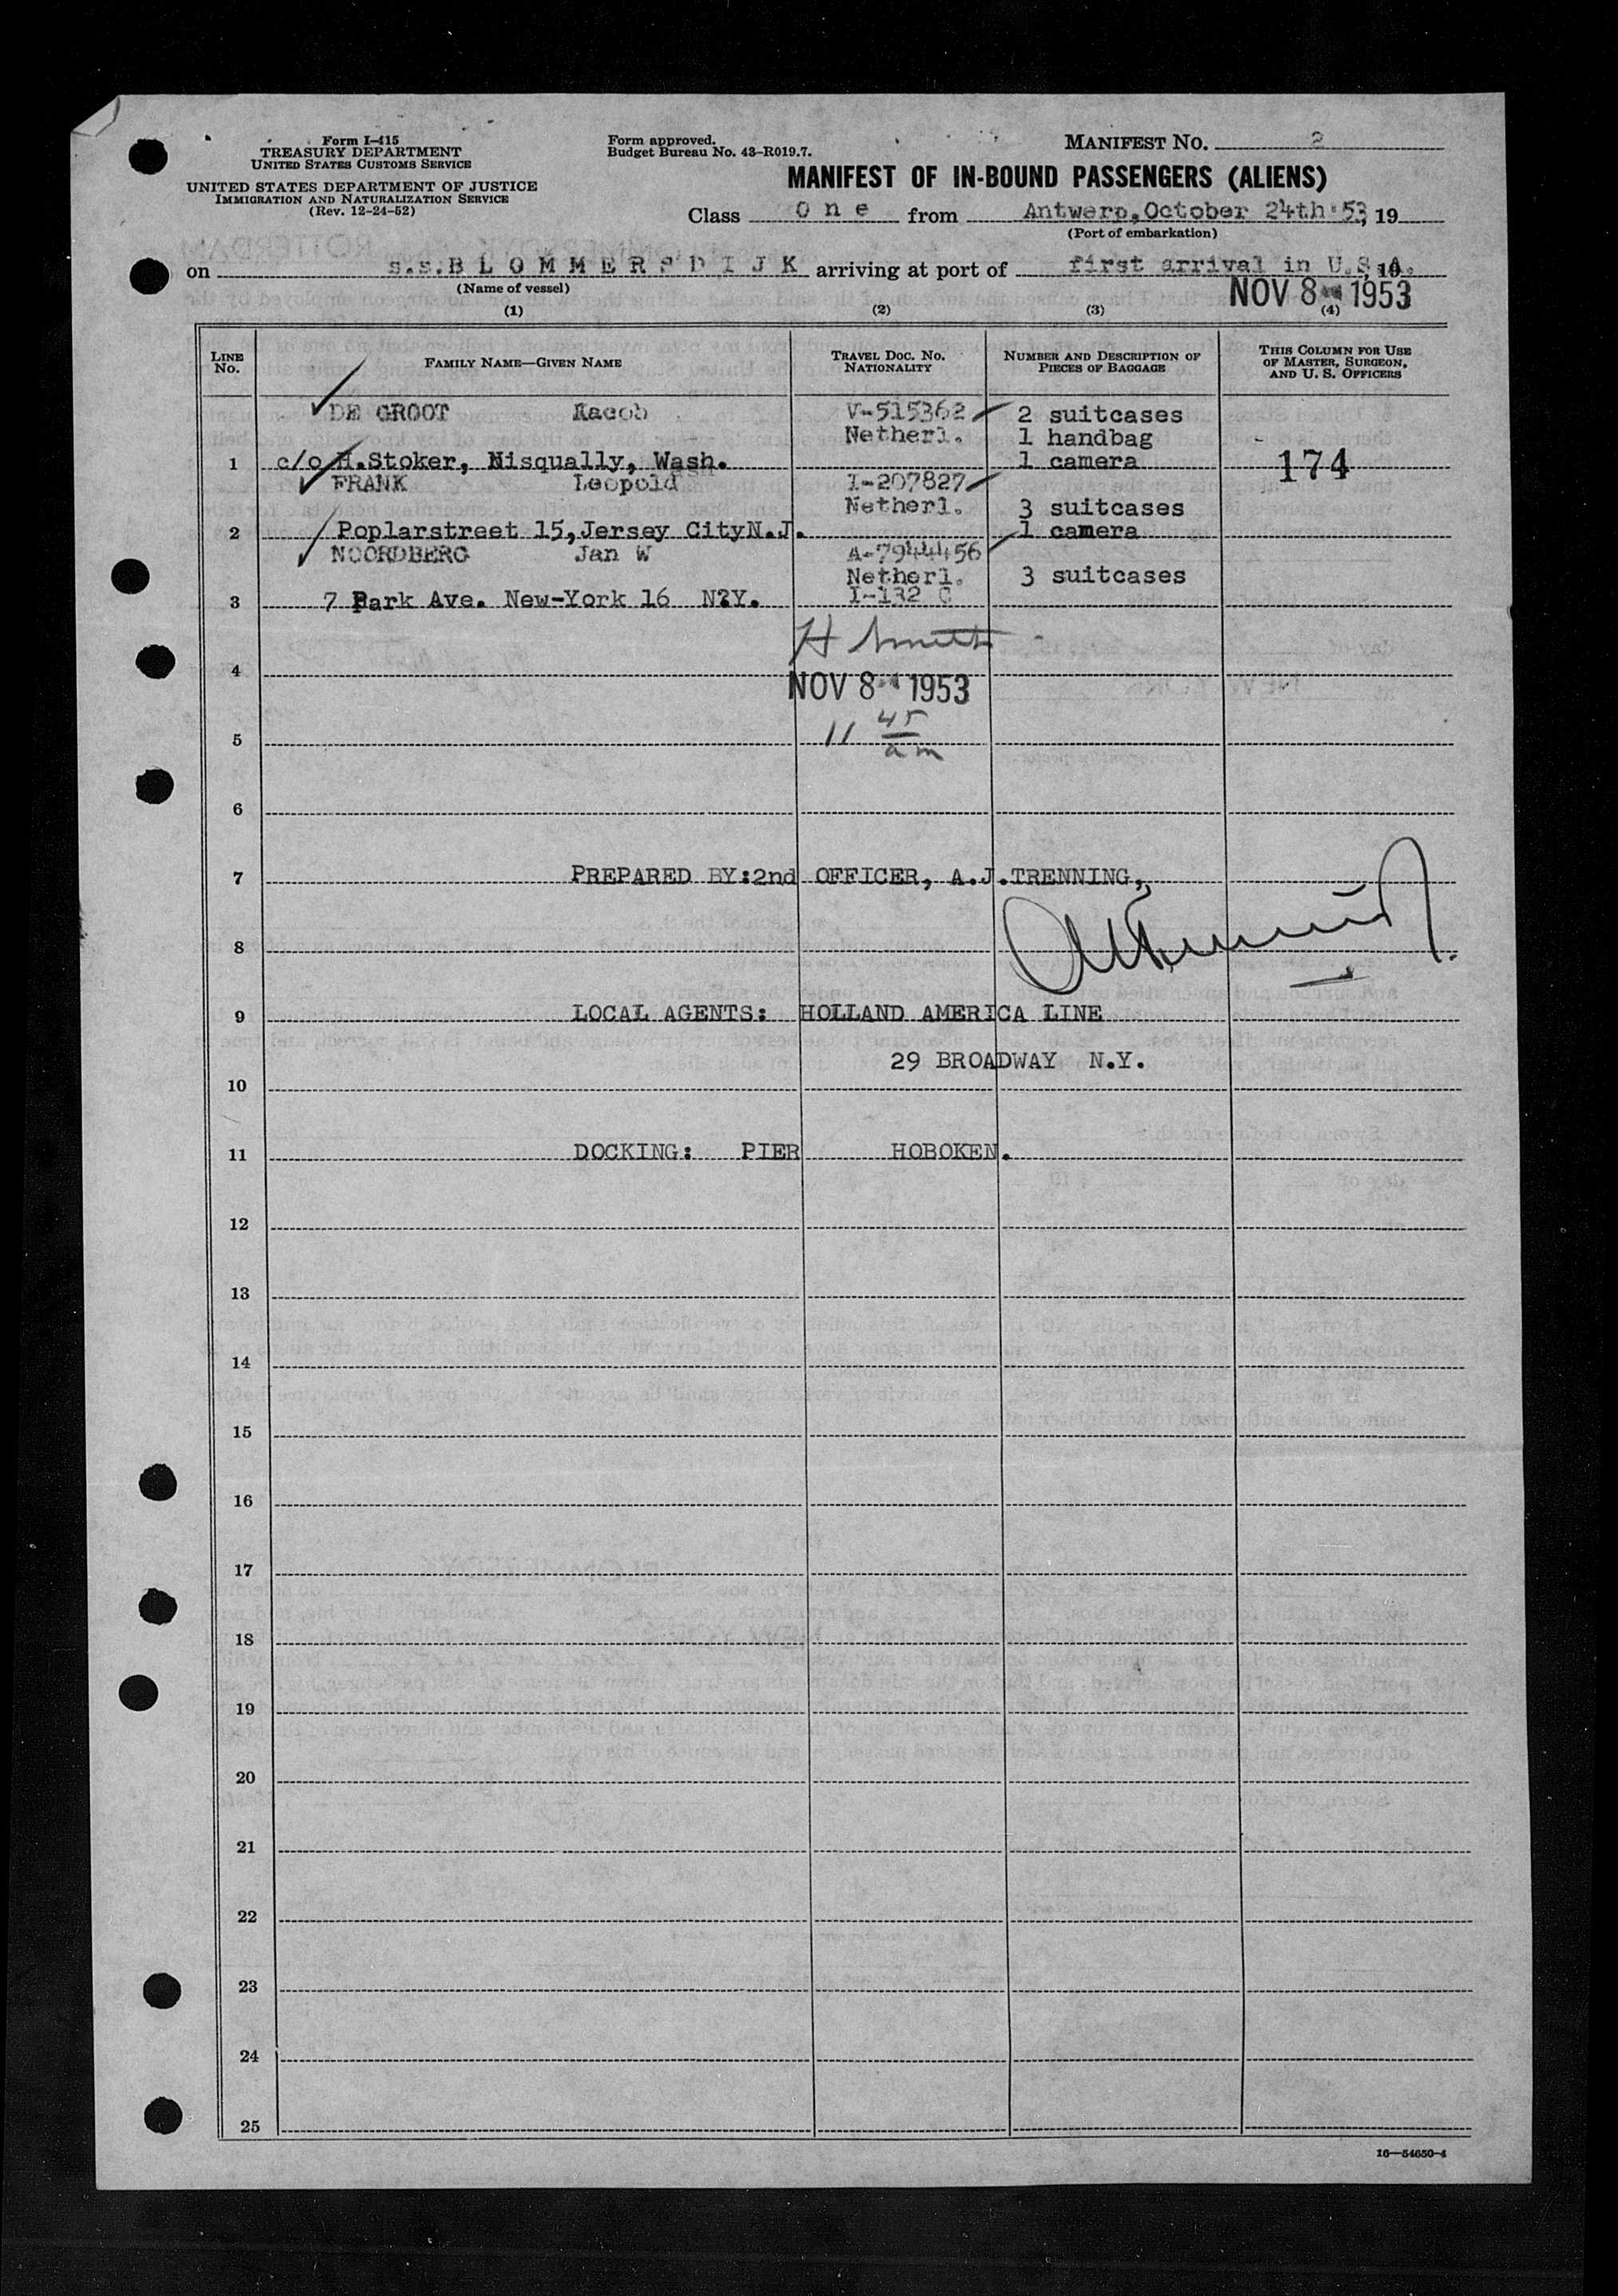 Form I-415
TREASURY DEPARTMENT
UNITED STATES CUSTOMS SERVICE
UNITED STATES DEPARTMENT OF JUSTICE
IMMIGRATION AND NATURALIZATION SERVICE
(Rev. 12-24-52)
Form approved.
Budget Bureau No. 43-R019.7.
MANIFEST NO. 2
MANIFEST OF IN-BOUND PASSENGERS (ALIENS)
Class One from Antwerp, October 24th '53, 19
(Port of embarkation)
on s.s. BLOMMERSDIJK arriving at port of first arrival in U.S.A. , 19
(Name of vessel)
NOV 8 1953
(1) (2) (3) (4)
LINE No. FAMILY NAME—GIVEN NAME TRAVEL DOC. NO. NATIONALITY NUMBER AND DESCRIPTION OF PIECES OF BAGGAGE THIS COLUMN FOR USE OF MASTER, SURGEON, AND U. S. OFFICERS
DE GROOT V-515362 2 suitcases
Netherl. 1 handbag
1 c/o H.Stoker, Nisqually, Wash. 1 camera 174
FRANK Leopold I-207827
Netherl. 3 suitcases
2 Poplarstreet 15, Jersey City N.J. 1 camera
NOORDBERG Jan W A-7944456
Netherl. 3 suitcases
3 7 Park Ave. New-York 16 N?Y. I-132 C
4
NOV 8 1953
11 45 am
5
6
7 PREPARED BY:2nd OFFICER, A.J.TRENNING,
8
9 LOCAL AGENTS: HOLLAND AMERICA LINE
29 BROADWAY N.Y.
10
11 DOCKING: PIER HOBOKEN.
12
13
14
15
16
17
18
19
20
21
22
23
24
25
16—54650-4